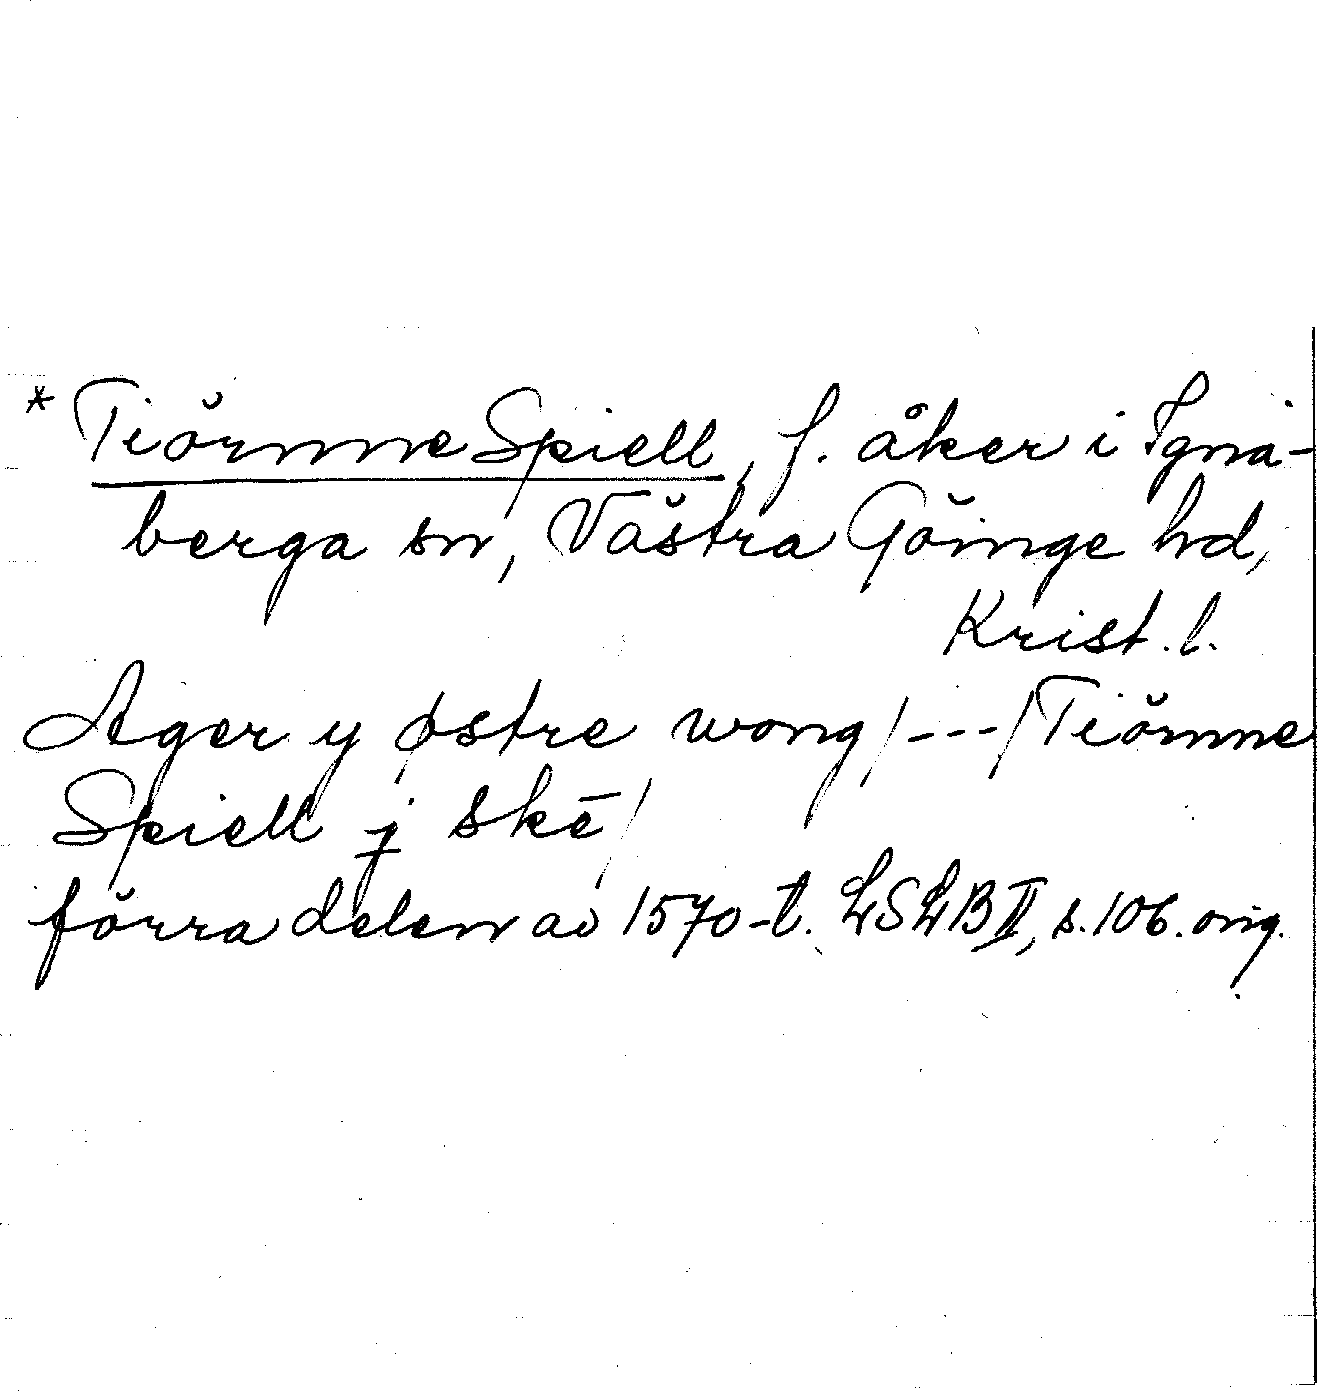 * Tiörnne Spiell, f. åker i Igna-
berga sn, Västra Göinge hd,
Krist. l.
Ager y østre wong/---/Tiönne
Spiell j skē/
förra delen av 1570-t. LSLB II, s. 106. orig.